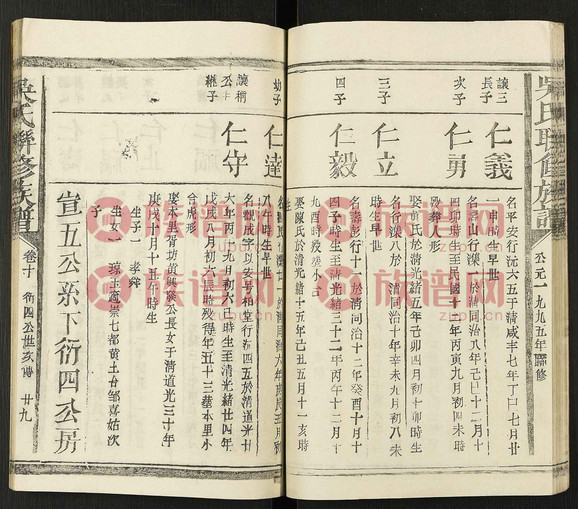 吳氏聯修族譜
公元一九九五年聯修
讓三
長子
仁義
名平安行沅六五于清咸丰七年丁巳七月廿
一申時生早世
次子
仁勇
名壽山行漢 於清同治八年己巳十二月十
四卯時生至民國十三年丙寅九月初四未時
殁葬人形
娶 氏於清光緒五年己卯四月初十卯時生
三子
仁立
名 行漢八於清同治十年辛未九月初八未
時生早世
四子
仁毅
名壽彭行漢十 於清同治十二年癸酉十月十
四子時生至清光緒三十二年丙午十二月十
九酉時殁葬小
娶陳氏於清光緒十五年己丑五月十一亥時
生
幼子
仁達
八午時生早世
讓稱
公
繼子
仁守
名觀成字以安号和堂行沅四五於清道光廿
六年丙午九月初六巳時生至清光緒廿四年
戊戌三月初六辰時殁得年五十三墓本里小
合虎形
娶本里胥坊黄興廣公長女于清道光三十年
庚戌十月十五日
生子一 孝舞
生女一 瓊玉適崇七都黄土台邹喜始次
子
宣五公宗下衍四公房
吳氏聯修族譜
卷十
衍四公世系傳
廿九
族谱网
zupu.cn
族谱网
zupu.cn